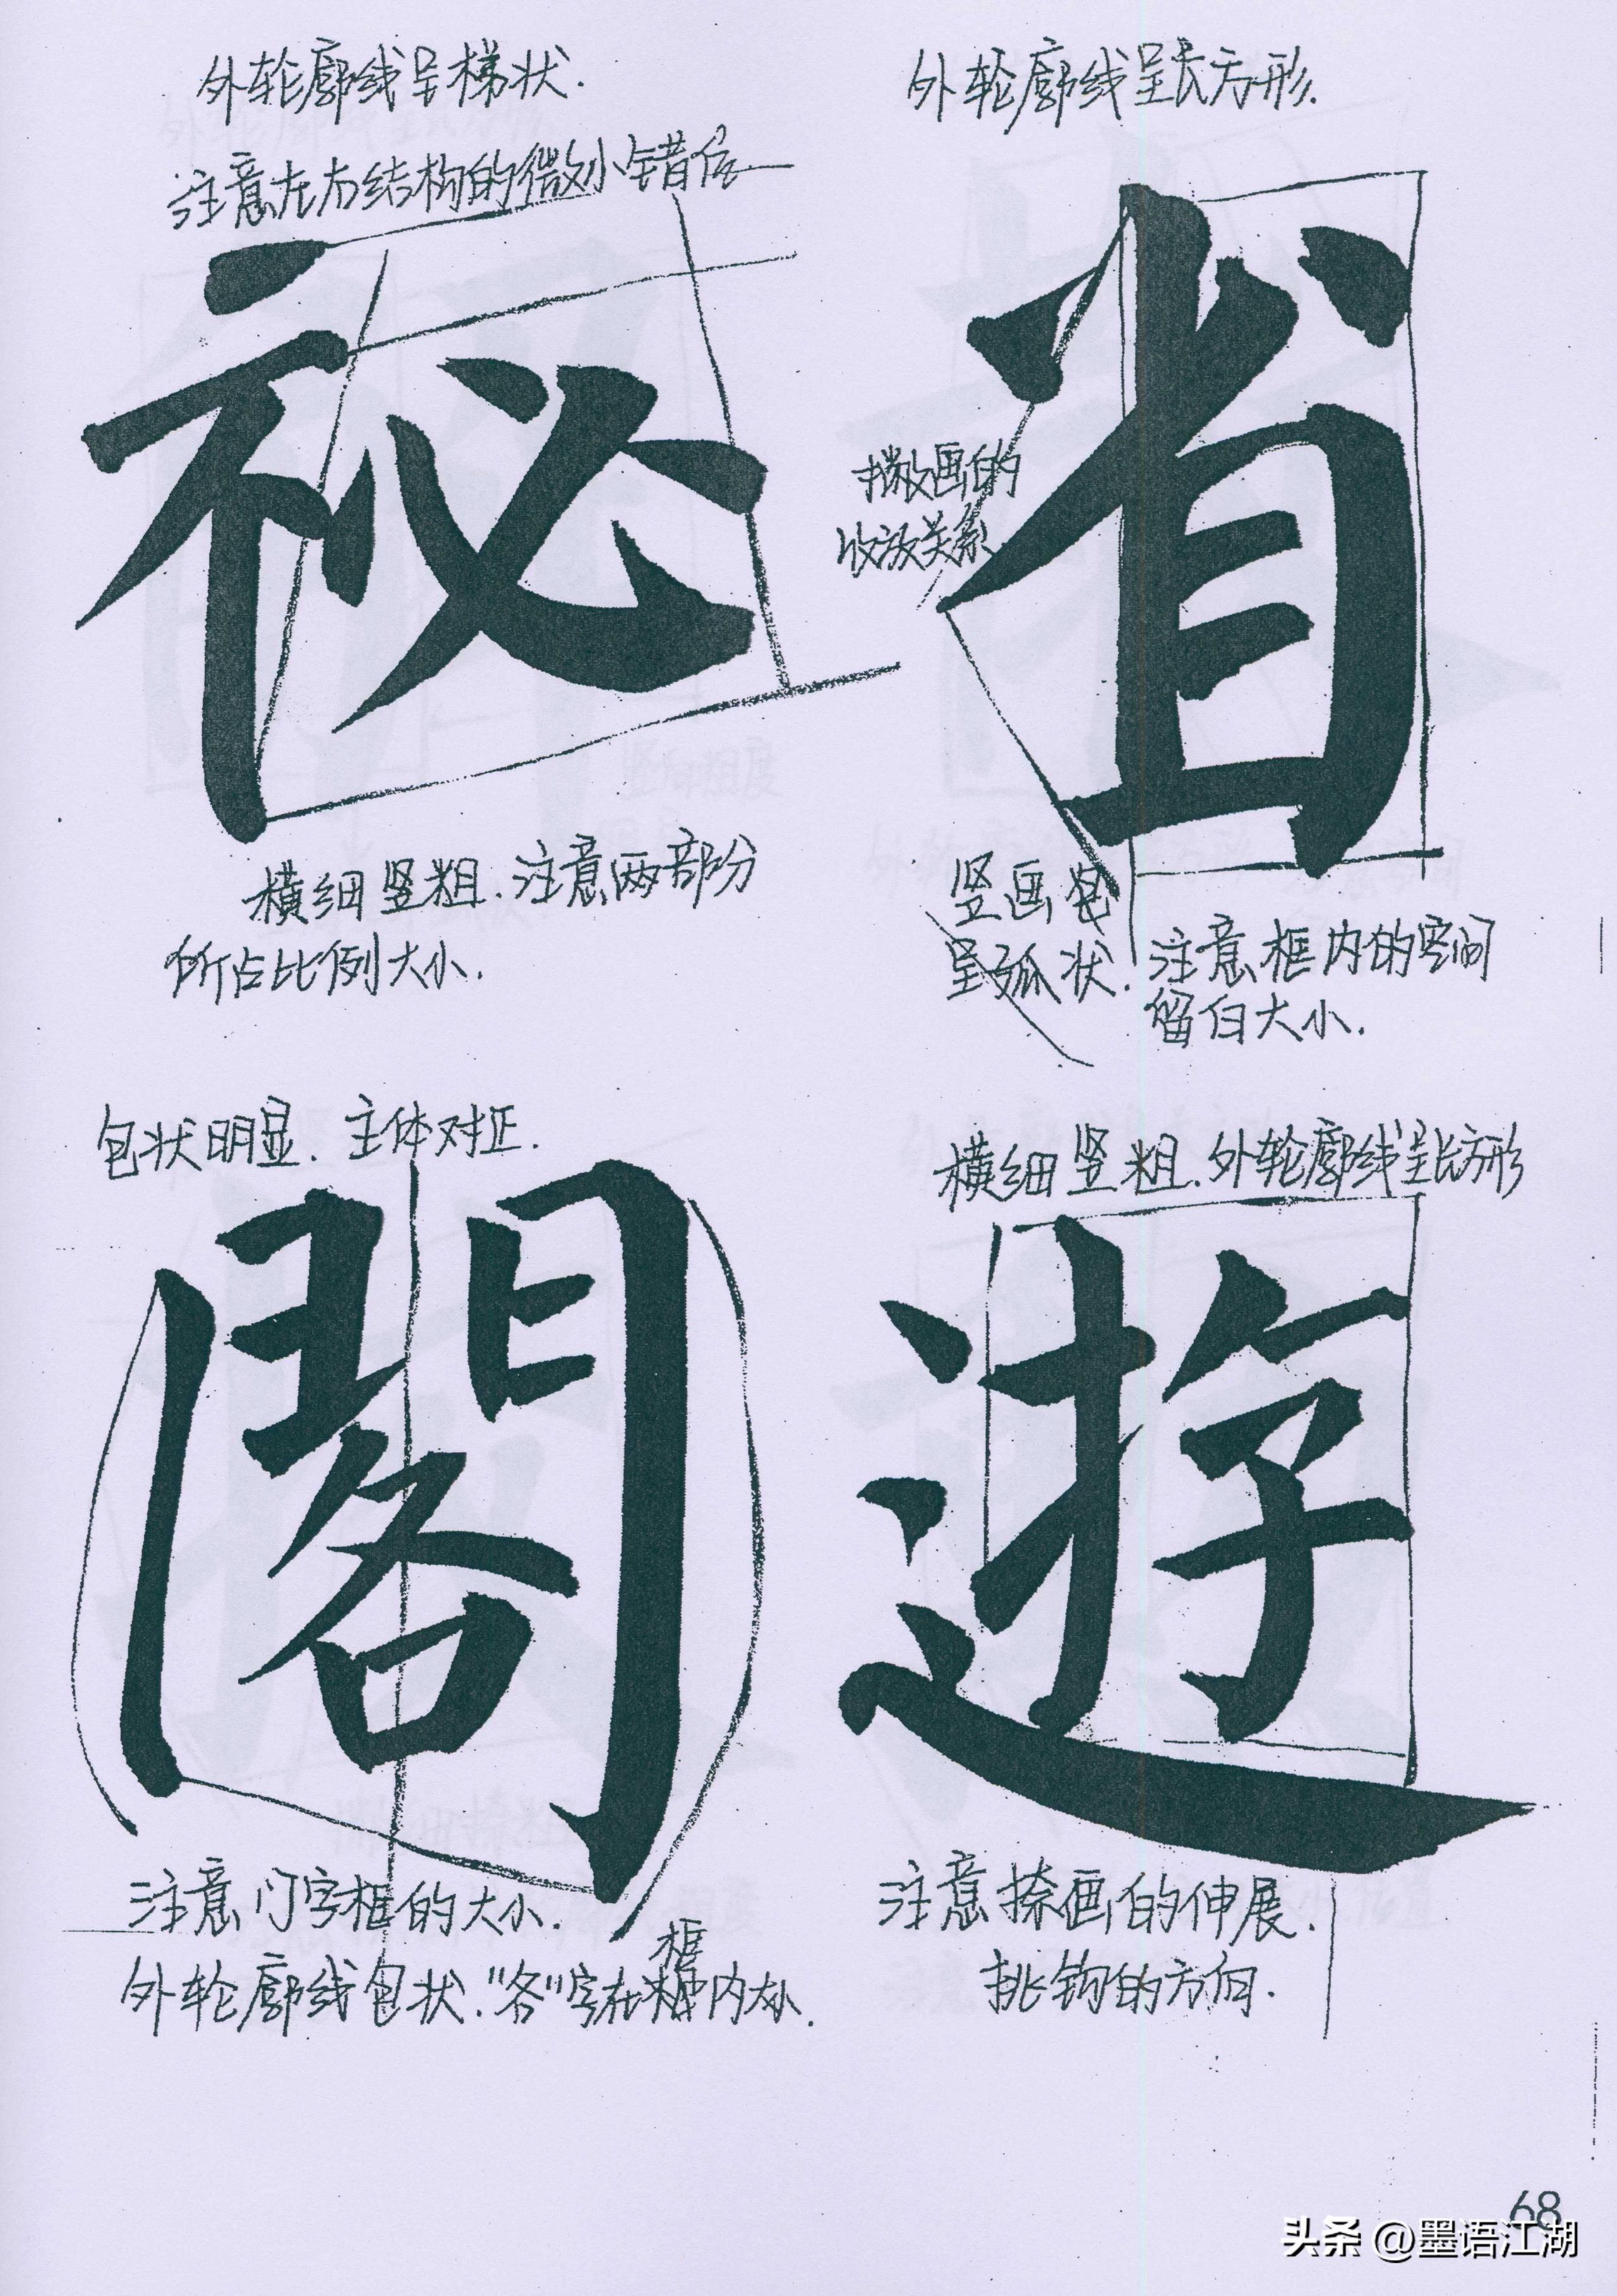 外轮廓线呈梯状.
注意左右结构的微小错位
祕
横细竖粗.注意两部分
所占比例大小.
外轮廓线呈长方形.
省
撇画的
收放关系
竖画
呈弧状.
注意框内的空间
留白大小.
包状明显.主体对正.
閣
注意门字框的大小.
外轮廓线包状.“各”字在框内大小.
横细竖粗.外轮廓线呈长方形
遊
注意捺画的伸展.
挑钩的方向.
68
头条 @墨语江湖